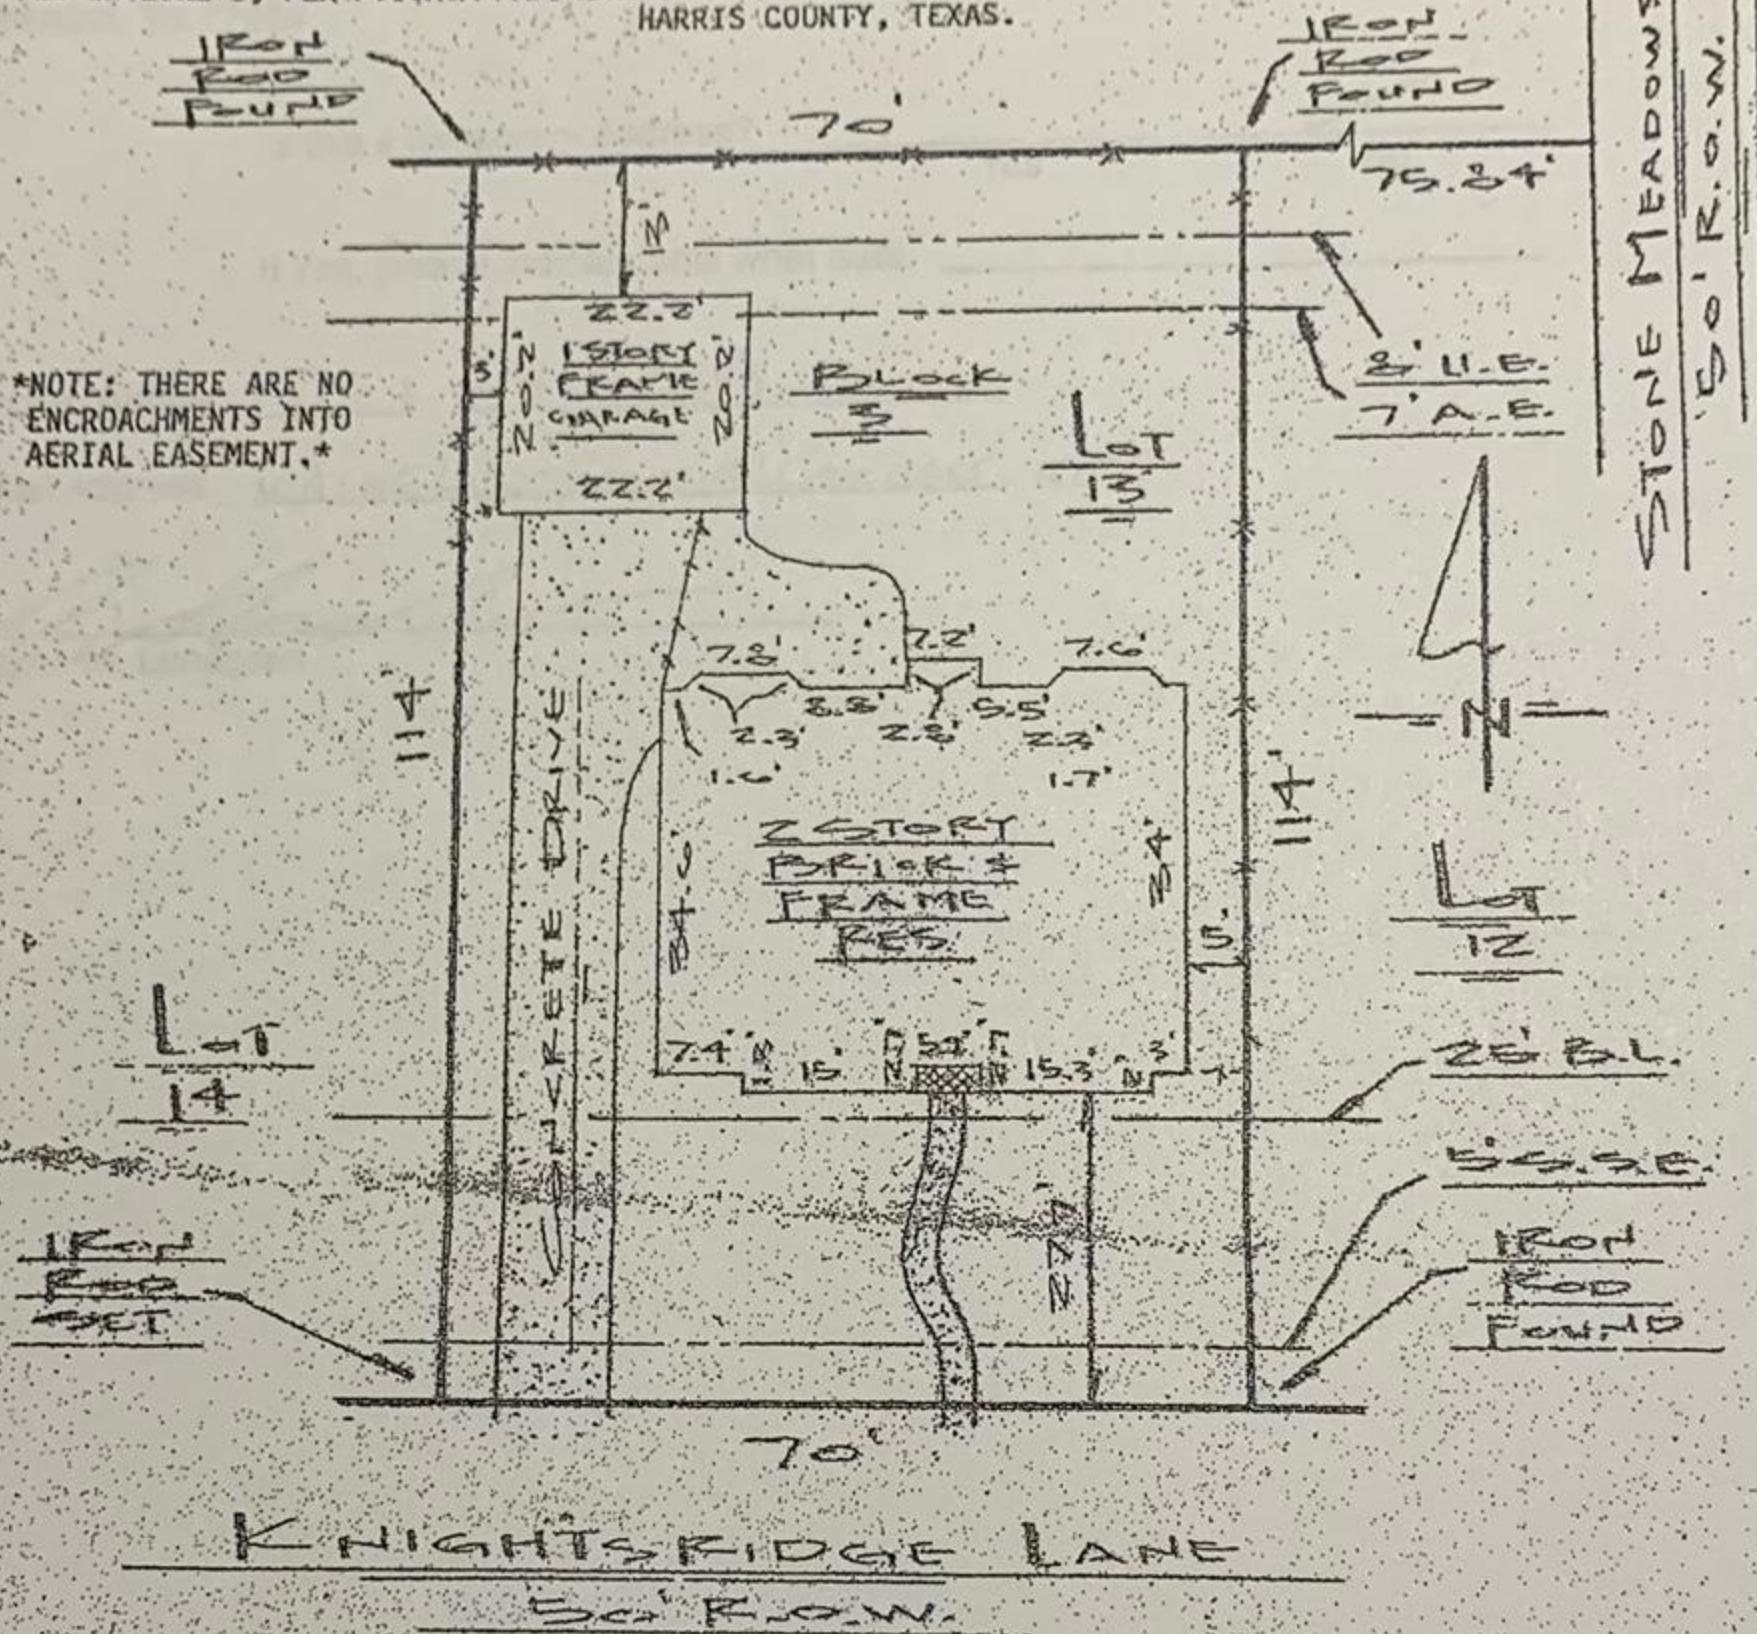 HARRIS COUNTY, TEXAS.
IRON
ROD
FOUND
IRON
ROD
FOUND
70'
75.84'
STONE MEADOWS
50' R.O.W.
13'
22.2'
20.2'
1 STORY
FRAME
GARAGE
20.2'
22.2'
5'
BLOCK
3
LOT
13
8' U.E.
7' A.E.
*NOTE: THERE ARE NO
ENCROACHMENTS INTO
AERIAL EASEMENT.*
N
114'
114'
CONCRETE DRIVE
7.8'
7.2'
7.6'
8.8'
5.5'
2.3'
2.8'
2.2'
1.6'
1.7'
2 STORY
BRICK &
FRAME
RES.
34.6'
34'
5'
LOT
12
LOT
14
7.4'
15'
15.3'
3'
25' B.L.
5' S.S.E.
27.7'
IRON
ROD
SET
IRON
ROD
FOUND
70'
KNIGHTSRIDGE LANE
50' R.O.W.